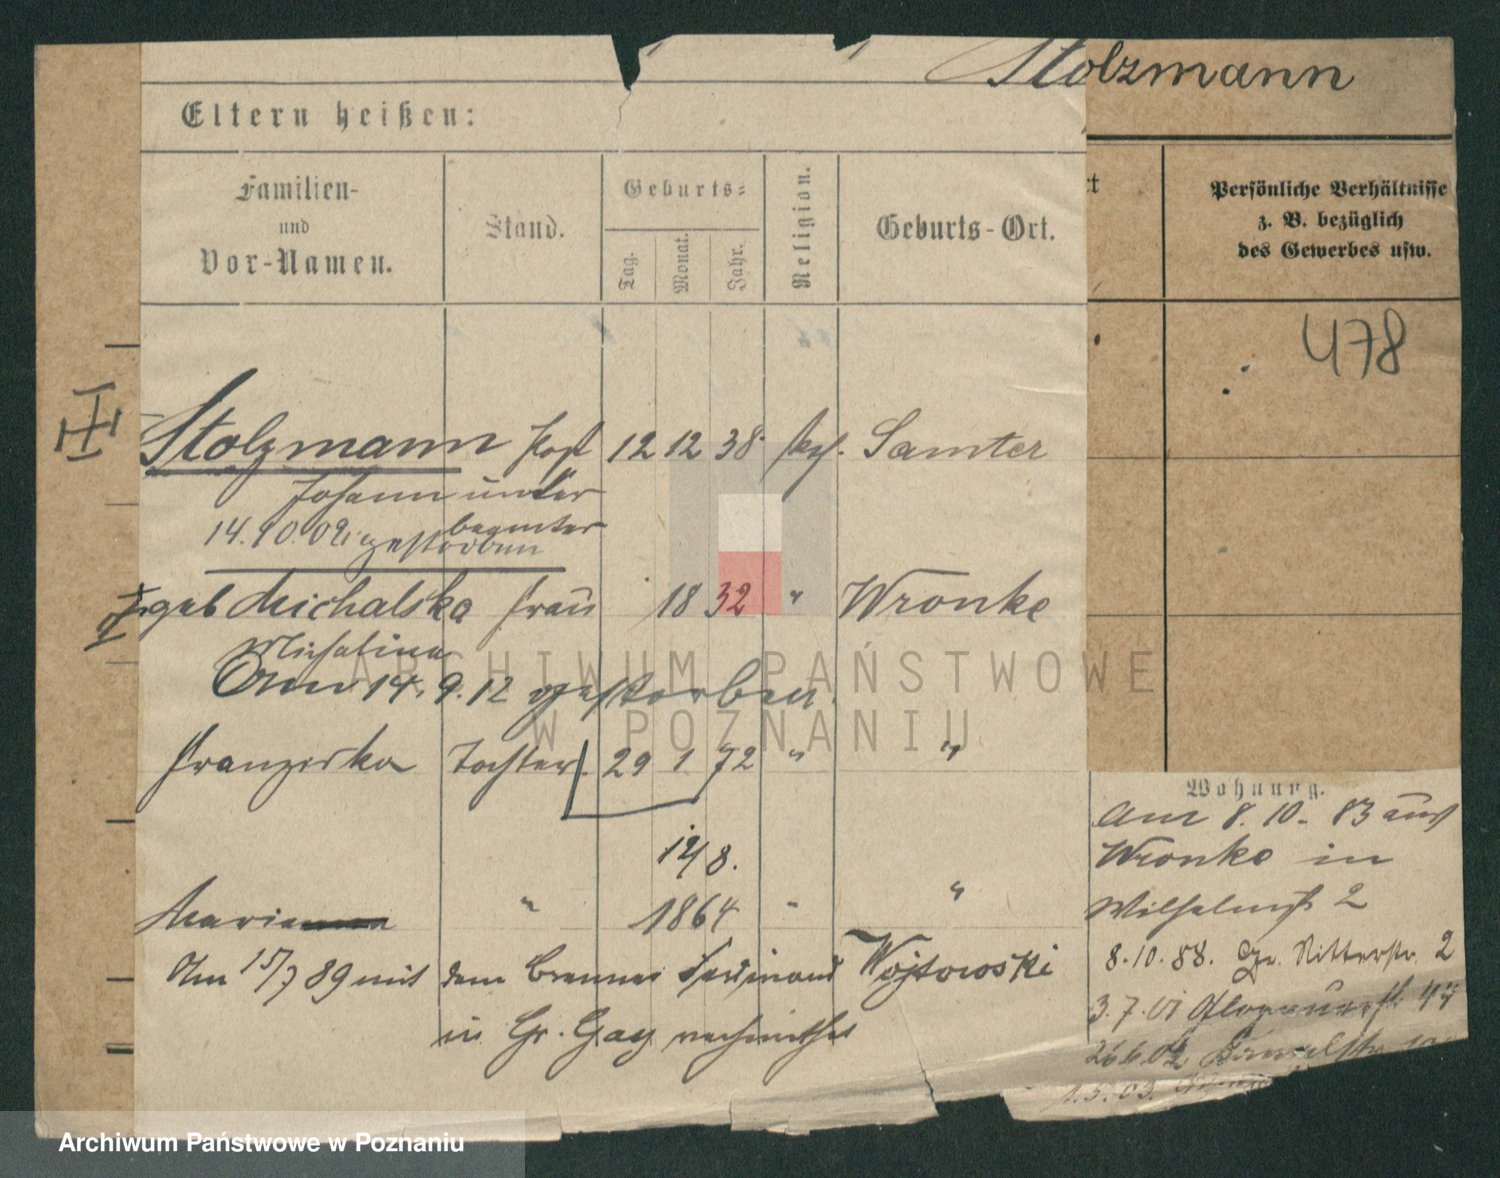 Stolzmann
Eltern heißen:
Familien-
und
Vor-Namen.
Stand.
Geburts-
Tag.
Monat.
Jahr.
Religion.
Geburts-Ort.
rt
Persönliche Verhältnisse
z. B. bezüglich
des Gewerbes usw.
478
III
Stolzmann Post 12 12 38 kth. Samter
Johann unter
beamter
14.10.02 gestorben
geb Michalska Frau 18 32 " Wronke
Michalina
Am 14.9.12 gestorben.
Franziska Tochter 29 1 72 " "
12/8.
Marianna " 1864 " "
Am 15/7 89 mit dem Brenner Ferdinand Wojtowski
in Gr. Gay verheirathet
Wohnung.
Am 8.10.83 aus
Wronke in
Wilhelmst 2
8.10.88. Gr. Ritterstr. 2
3.7.01
26.6.02
1.5.03.
ARCHIWUM PAŃSTWOWE
W POZNANIU
Archiwum Państwowe w Poznaniu